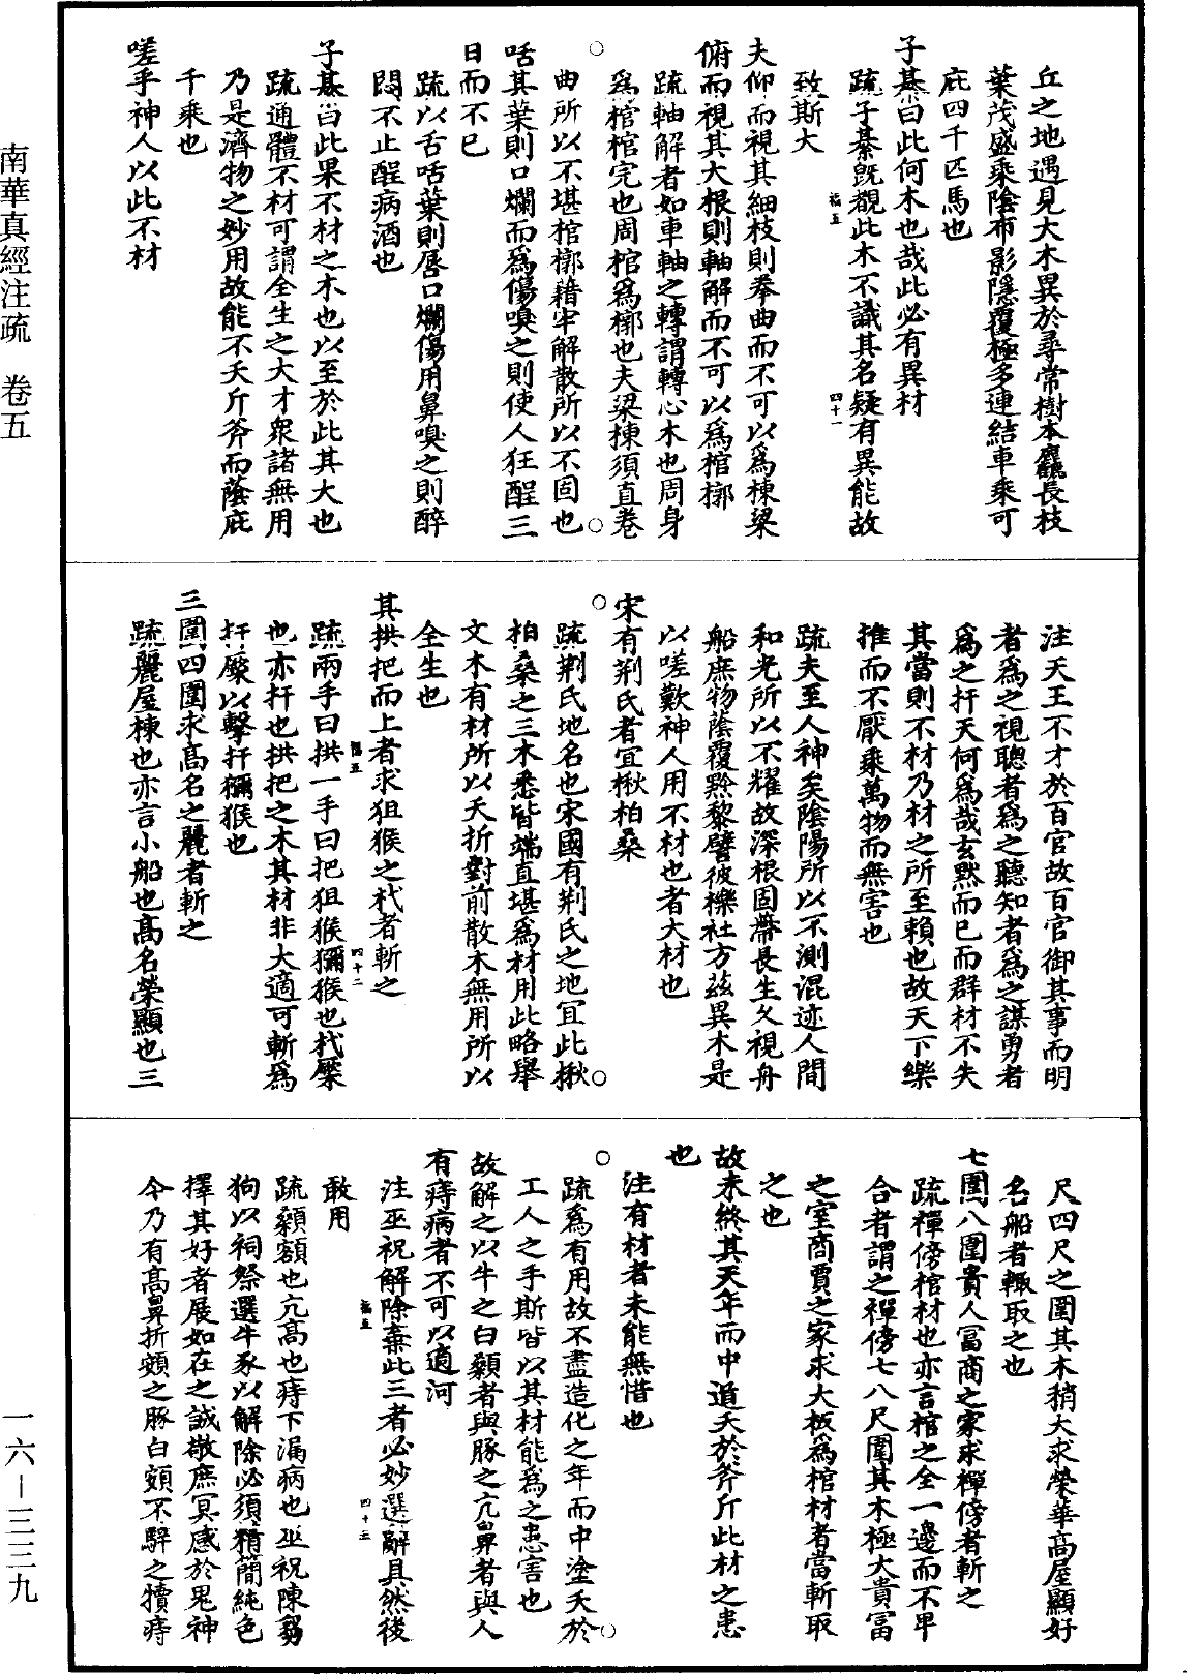 南華真經注疏　卷五
一六—三三九
丘之地遇見大木異於尋常樹本麤長枝
葉茂盛乘陰布影隱覆極多連結車乘可
庇四千匹馬也
子綦曰此何木也哉此必有異材
疏子綦旣覩此木不識其名疑有異能故
致斯大
福五
四十一
夫仰而視其細枝則拳曲而不可以爲棟梁
俯而視其大根則軸解而不可以爲棺槨
疏軸解者如車軸之轉謂轉心木也周身
爲棺棺完也周棺爲槨也夫梁棟須直卷
曲所以不堪棺槨藉牢解散所以不固也
咶其葉則口爛而爲傷嗅之則使人狂酲三
日而不已
疏以舌咶葉則唇口爛傷用鼻嗅之則醉
悶不止酲病酒也
子綦曰此果不材之木也以至於此其大也
疏通體不材可謂全生之大才衆諸無用
乃是濟物之妙用故能不夭斤斧而蔭庇
千乘也
嗟乎神人以此不材
注天王不才於百官故百官御其事而明
者爲之視聰者爲之聽知者爲之謀勇者
爲之扞夫何爲哉玄默而已而群材不失
其當則不材乃材之所至賴也故天下樂
推而不厭乘萬物而無害也
疏夫至人神矣陰陽所以不測混迹人間
和光所以不耀故深根固蔕長生久視舟
船庶物蔭覆黔黎譬彼櫟社方茲異木是
以嗟歎神人用不材也者大材也
宋有荆氏者宜楸柏桑
疏荆氏地名也宋國有荆氏之地宜此楸
柏桑之三木悉皆端直堪爲材用此略舉
文木有材所以夭折對前散木無用所以
全生也
其拱把而上者求狙猴之杙者斬之
福五
四十二
疏兩手曰拱一手曰把狙猴獼猴也杙橜
也亦扞也拱把之木其材非大適可斬爲
扞橜以擊扞獼猴也
三圍四圍求高名之麗者斬之
疏麗屋棟也亦言小船也高名榮顯也三
尺四尺之圍其木稍大求榮華高屋顯好
名船者輙取之也
七圍八圍貴人冨商之家求樿傍者斬之
疏樿傍棺材也亦言棺之全一邊而不平
合者謂之樿傍七八尺圍其木極大貴冨
之室商賈之家求大板爲棺材者當斬取
之也
故未終其天年而中道夭於斧斤此材之患
也
注有材者未能無惜也
疏爲有用故不盡造化之年而中塗夭於
工人之手斯皆以其材能爲之患害也
故解之以牛之白顙者與豚之亢鼻者與人
有痔病者不可以適河
注巫祝解除棄此三者必妙選騂具然後
敢用
福五
四十三
疏顙額也亢高也痔下漏病也巫祝陳芻
狗以祠祭選牛豕以解除必須精簡純色
擇其好者展如在之誠敬庶冥感於鬼神
今乃有高鼻折頞之豚白顙不騂之犢痔